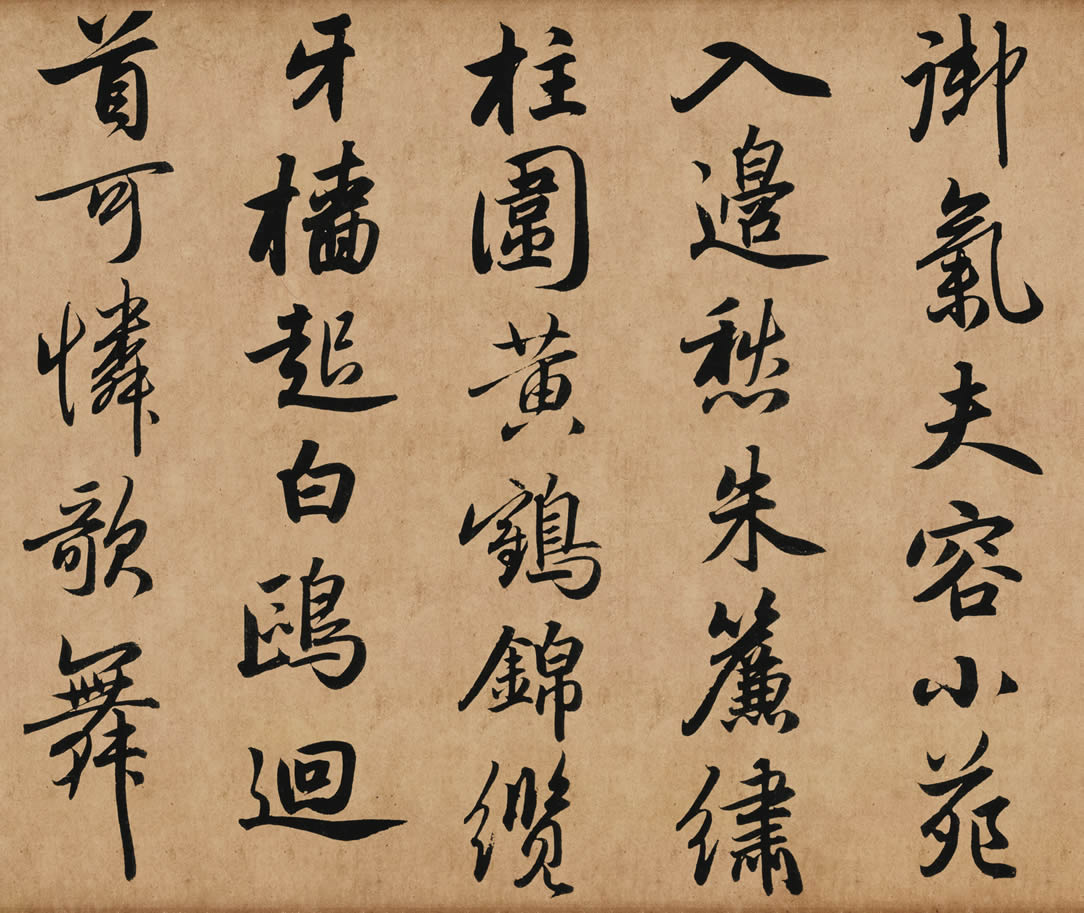 御氣夫容小苑
入邊愁朱簾繡
柱圍黃鶴錦纜
牙檣起白鷗迴
首可憐歌舞